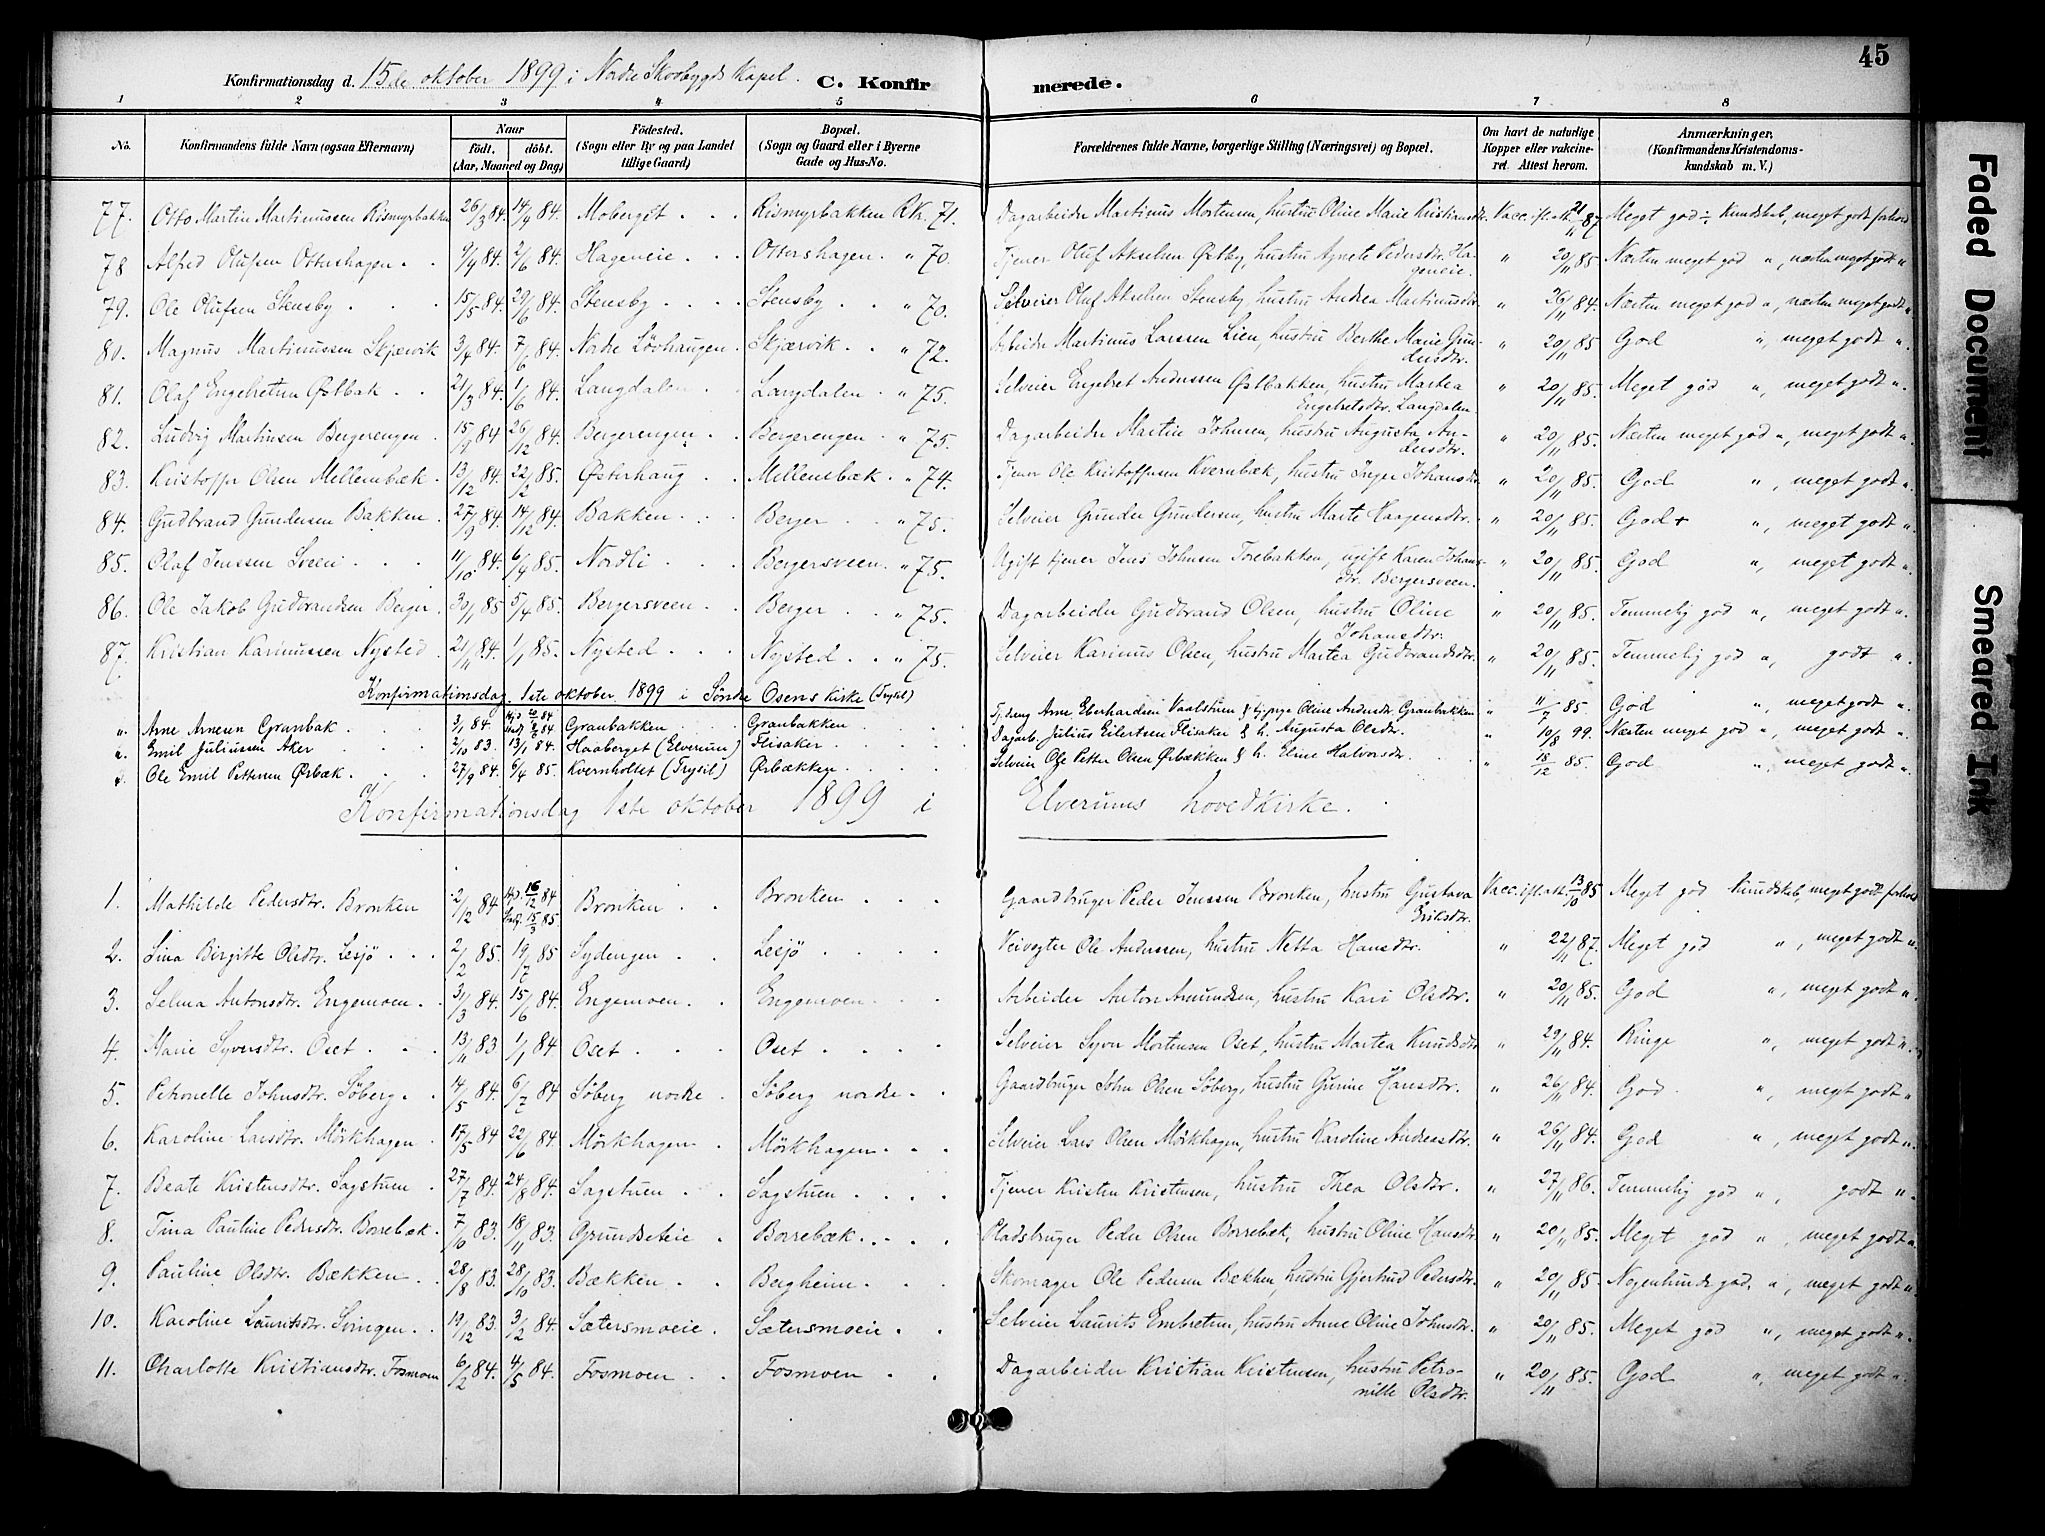 45
Konfirmationsdag d. 15de oktober 1899 i Nordre Skovbygds Kapel. C. Konfirmerede.
1 2 3 4 5 6 7 8
No. Konfirmandens fulde Navn (ogsaa Efternavn) Naar født, døbt. (Aar, Maaned og Dag) Fødested. (Sogn eller By og paa Landet tillige Gaard) Bopæl. (Sogn og Gaard eller i Byerne Gade og Hus-No. Forældrenes fulde Navne, borgerlige Stilling (Næringsvei) og Bopæl. Om havt de naturlige Kopper eller vakcineret. Attest herom. Anmærkninger. (Konfirmandens Kristendomskundskab m. V.)
77. Otto Martin Martinussen Rismyrbakken 26/3 84. 14/4 84. Moberget Rismyrbakken Rk. 71. Dagarbeider Martinus Mortensen, hustru Oline Marie Kristiansdtr. Vacc. ifl. att. 21/11 87 Meget god ÷ Kundskab, meget godt forhold
78 Alfred Olufsen Ottershagen 9/4 84. 2/6 84. Hageneie Ottershagen " 70. Tjener Oluf Akselsen Østby, hustru Agnete Pedersdtr. Hageneie. " 20/11 85 Næsten meget god ", næsten meget godt "
79. Ole Olufsen Stensby 15/5 84. 29/6 84. Stensby Stensby " 70. Selveier Oluf Akselsen Stensby, hustru Andrea Martinusdtr. " 26/11 84. Næsten meget god ", næsten meget godt "
80. Magnus Martinussen Skjærvik 3/4 84. 7/6 84. Nordre Løvhaugen Skjærvik " 72. Arbeider Martinus Larssen Lien, hustru Berthe Marie Gundersdtr. " 20/11 85 God ", meget godt "
81. Olaf Engebretsen Østbak 21/3 84. 1/6 84. Langdalen Langdalen " 75. Selveier Engebret Anderssen Østbakken, hustru Martea Engebretsdtr. Langdalen " 20/11 85. Meget god ", meget godt "
82. Ludvig Martinsen Bergerengen 15/9 84 26/12 84. Bergerengen Bergerengen " 75. Dagarbeider Martin Johnsen, hustru Augusta Andersdtr. " 20/11 85. Næsten meget god ", meget godt "
83. Kristoffer Olsen Mellembæk 13/12 84. 22/2 85. Østerhaug Mellembæk " 74. Tjener Ole Kristoffersen Kvernbæk, hustru Inger Johansdtr. " 20/11 85. God ", meget godt "
84. Gudbrand Gundersen Bakken 27/9 84. 14/12 84. Bakken Berger " 75. Selveier Gunder Gundersen, hustru Marte Haagensdtr. " 20/11 85. God + ", meget godt "
85. Olaf Jenssen Sveen 11/10 84. 6/4 85. Nordli Bergersveen " 75. Ugift tjener Jens Johnsen Torebakken, ugift Karen Johansdtr. Bergersveen. " 20/11 85. God ", meget godt "
86. Ole Jakob Gudbrandsen Berger 30/1 85 5/4 85. Bergersveen Berger " 75. Dagarbeider Gudbrand Olsen, hustru Oline Johansdtr. " 20/11 85. Temmelig god ", meget godt "
87. Kristian Karinussen Nysted 21/11 84. 1/1 85. Nysted Nysted " 75. Selveier Karinus Olsen, hustru Martea Gudbrandsdtr. " 20/11 85. Temmelig god ", godt "
Konfirmationsdag 1ste oktober 1899 i Søndre Osens kirke (Trysil)
" Arne Arnesen Granbak 3/1 84. Granbakken Granbakken Arne Eberhardsen Vaalstuen & Oline Andersdtr. Granbakken " 11/7 85 God ", meget godt "
" Emil Juliussen Aker 2/10 83. 13/1 84. Haaberget (Elverum) Flisaker Dagarb. Julius Eilertsen Flisaker & h. Augusta Olsdtr. " 10/8 99. Næsten meget god ", meget godt "
" Ole Emil Pettersen Ørbæk 27/9 84. 6/4 85. Kvernholtet (Trysil) Ørbækken Selveier Ole Petter Olsen Ørbækken & h. Eline Halvorsdtr. " 18/12 85. God ", meget godt "
Konfirmationsdag 1ste oktober 1899 i Elverums hovedkirke.
1. Mathilde Pedersdtr. Bronken 2/12 84 Hjd. 16/12 84 15/3 85 Bronken Bronken Gaardbruger Peder Jenssen Bronken, hustru Gustava Eriksdtr. Vacc. ifl. att. 13/10 85 Meget god Kundskab, meget godt forhold
2. Lina Birgitte Olsdtr. Lesjø 2/2 85. 19/7 85 Sydengen Lesjø Veivogter Ole Anderssen, hustru Netta Hansdtr. " 22/11 87. Meget god ", meget godt "
3. Selma Antonsdtr. Engemoen 31/3 84. 15/6 84. Engemoen Engemoen Arbeider Anton Amundsen, hustru Kari Olsdtr. " 20/11 85. God ", meget godt "
4. Marie Syversdtr. Oset 13/11 83 1/1 84 Oset Oset Selveier Syver Mortensen Oset, hustru Martea Knudsdtr " 29/11 84. Ringe ", meget godt "
5. Petronelle Johnsdtr. Søberg 14/5 84. 6/7 84 Søberg nordre Søberg nordre Gaardbruger John Olsen Søberg, hustru Gurine Hansdtr. " 26/11 84. God ", meget godt "
6. Karoline Larsdtr. Mørkhagen 17/5 84 22/6 84 Mørkhagen Mørkhagen Selveier Lars Olsen Mørkhagen, hustru Karoline Andreasdtr. " 26/11 84. God ", meget godt "
7. Beate Kristensdtr. Sagstuen 27/7 84. 24/8 84. Sagstuen Sagstuen Tjener Kristen Kristensen, hustru Thea Olsdtr. " 27/11 86. Temmelig god ", godt "
8. Tina Pauline Pedersdtr. Borrebæk 7/10 83. 18/11 83. Grundseteie Borrebæk Pladsbruger Peder Olsen Borrebæk, hustru Oline Hansdtr. " 20/11 85. Meget god ", meget godt "
9. Pauline Olsdtr. Bækken 28/8 83. 28/10 83. Bækken Bergheim Skomager Ole Pedersen Bækken, hustru Gjertrud Pedersdtr. " 20/11 85. Nogenlunde god ", meget godt "
10. Karoline Lauritsdtr. Svingen 19/12 83. 3/2 84. Sætersmoeie Sætersmoeie Selveier Laurits Embretsen, hustru Anne Oline Johnsdtr. " 20/11 85. Meget god ", meget godt "
11. Charlotte Kristiansdtr. Fosmoen 6/2 84. 4/5 84. Fosmoen Fosmoen Dagarbeider Kristian Kristensen, hustru Petronille Olsdtr. " 20/11 85. God ", meget godt "
Faded Document
Smeared Ink